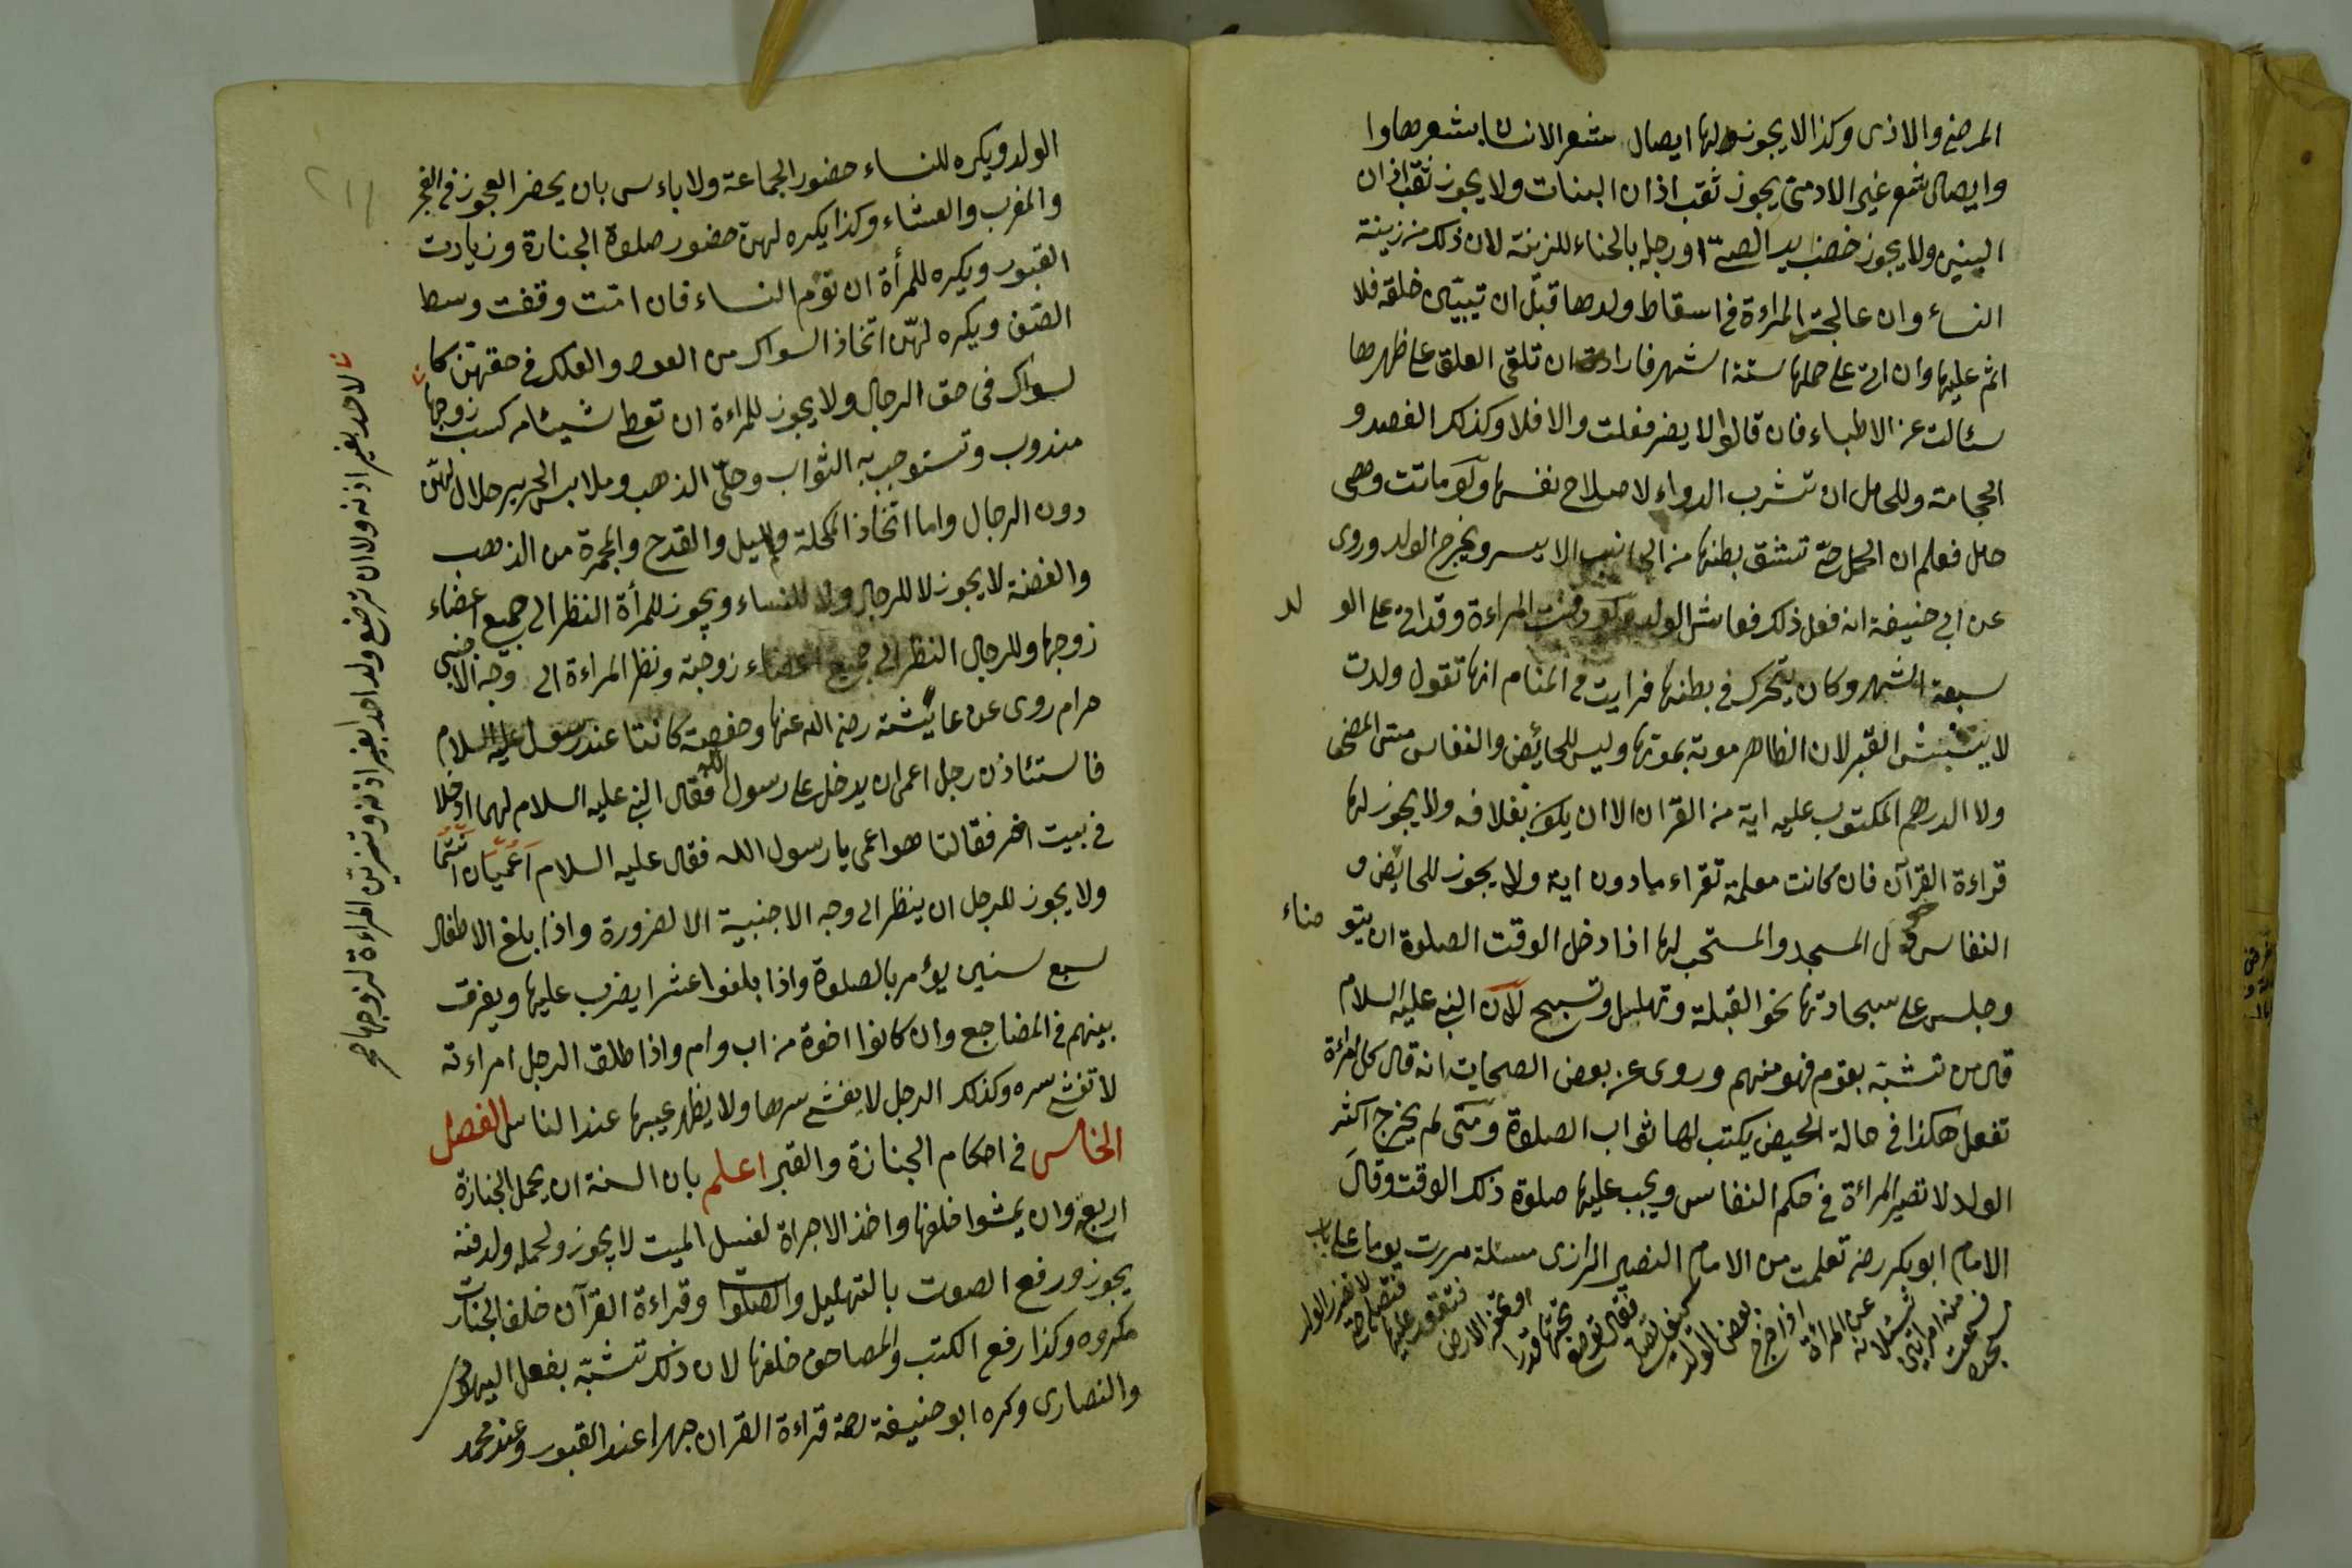 المرضع والاذى وكذا لا يجوز لها ايصال شعر الانسان بشعرها وا
وايصال شعر غير الادمى يجوز ثقب اذان البنات ولا يجوز ثقب اذان
البنين ولا يجوز خضب يد الصبى او رجله بالحناء للزينة لان ذلك من زينة
النساء وان عالجت المراءة فى اسقاط ولدها قبل ان تبيّن خلقه فلا
اثم عليها وان اتى على حملها ستة اشهر فارادت ان تلقى العلق على ظهرها
سئالت عن الاطباء فان قالوا لا يضر فعلت والا فلا وكذلك الفصد و
الحجامة وللحامل ان تشرب الدواء لاصلاح نفسها ولو ماتت وهى
حامل فعلم ان الحمل حىّ تشق بطنها من الجانب الايسر ويخرج الولد وروى
عن ابى حنيفة انه فعل ذلك فعاش الولد ولو دفنت المراءة وقد اتى على الو لد
سبعة اشهر وكان يتحرك فى بطنها فرايت فى المنام انها تقول ولدت
لا ينبش القبر لان الظاهر موته بموتها وليس للحائض والنفاس مس المصحف
ولا الدرهم المكتوب عليه اية من القران الا ان يكون بغلافه ولا يجوز لها
قراءة القرآن فان كانت معلمة تقراء مادون اية ولا يجوز للحائض و
النفاس دخول المسجد والمستحب لها اذا دخل الوقت الصلوة ان يتو ضاء
وجلس على سجادتها نحو القبلة وتهليل وتسبيح لان النبى عليه السلام
قال من تشبّه بقوم فهو منهم وروى عن بعض الصحابت انه قال كل امراءة
تفعل هكذا فى حالة الحيض يكتب لها ثواب الصلوة ومتى لم يخرج اكثر
الولد لا تصير المراءة فى حكم النفاس ويجب عليها صلوة ذلك الوقت وقال
الامام ابو بكر رضه تعلمت من الامام النصير الرازى مسئلة مررت يوما على باب
مسجده
فسمعت
منه امراتين
تسئلانه
عن المراءة
اذا خرج
بعض الولد
كيف تصلى
فقال توضع
تحتها قدرا
او تحفر الارض
فتقعد عليها
فتصلى حتى
لا تضرر الولد
الولد ويكره للنساء حضور الجماعة ولا باءس بان يحضر العجوز فى الفجر
والمغرب والعشاء وكذا يكره لهنّ حضور صلوة الجنازة وزيادت
القبور ويكره للمرأة ان تؤم النساء فان امّت وقفت وسط
الصّف ويكره لهنّ اتخاذ السواك من العود والعلك فى حقهنّ كا
لسواك فى حق الرجال ولا يجوز للمراءة ان تعطى شيئا من كسب زوجها
مندوب وتستوجب به الثواب وحلىّ الذهب وملابس الحرير حلال لهنّ
دون الرجال واما اتخاذ المكحلة والميل والقدح والمجمرة من الذهب
والفضة لا يجوز لا للرجال ولا للنساء ويجوز للمرأة النظر الى جميع اعضاء
زوجها وللرجال النظر الى جميع اعضاء زوجته ونظر المراءة الى وجه الاجنبى
حرام روى عن عايشة رضى الله عنها وحفصة كانتا عند رسول عليه السلام
فاستئاذن رجل اعمى ان يدخل على رسول الله فقال النبى عليه السلام لهما ادخلا
فى بيت اخر فقالتا هو اعمى يا رسول الله فقال عليه السلام اَعُمْيَان انتما
ولا يجوز للرجل ان ينظر الى وجه الاجنبية الا لضرورة واذا بلغ الاطفال
سبع سنين يؤمر بالصلوة واذا بلغوا عشرا يضرب عليها ويفرق
بينهم فى المضاجع وان كانوا اخوة من اب وام واذا طلق الرجل امراءته
لا تفش سره وكذلك الرجل لا يفشى سرها ولا يظهر عيبها عند الناس الفصل
الخامس فى احكام الجنازة والقبر اعلم بان السنة ان يحمل الجنازة
اربعة وان يمشوا خلفها واخذ الاجراة لغسل الميت لا يجوز ولحمله ولدفنه
يجوز ورفع الصوت بالتهليل والصلوات وقراءة القرآن خلف الجنازت
مكروه وكذا رفع الكتب والمصاحف خلفها لان ذلك تشبّه بفعل اليهود
والنصارى وكره ابو حنيفة رحة قراءة القران جهرا عند القبور وعند محمد
لاحد بغير اذنه ولا ان ترضع ولد احد بغير اذنه وتزين المراءة لزوجها صح